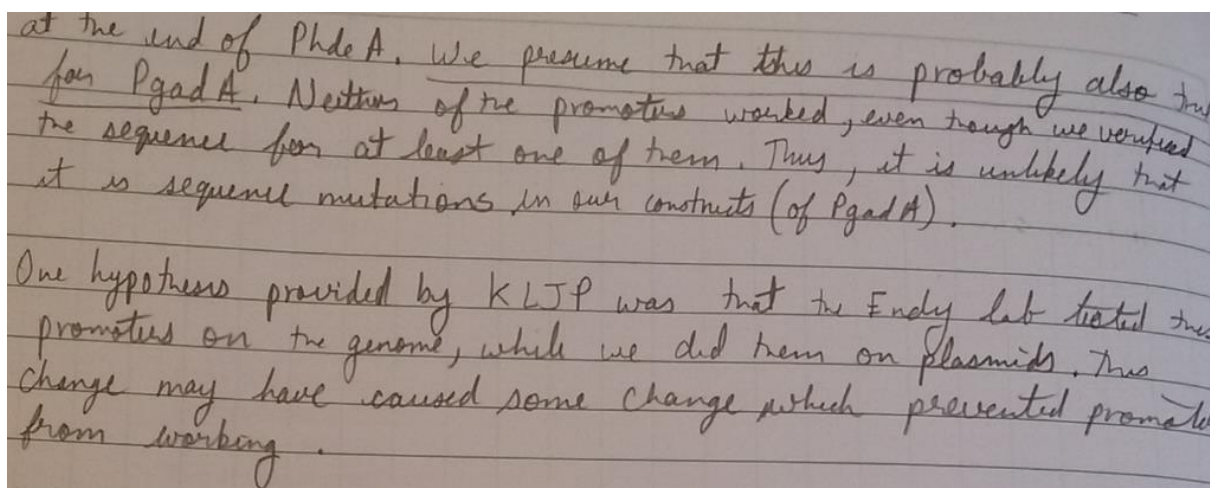 at the end of PhdeA. We presume that this is probably also tru
for PgadA. Neither of the promoters worked, even though we verified
the sequence for at least one of them. Thus, it is unlikely that
it is sequence mutations in our constructs (of PgadA).
One hypothesis provided by KLJP was that the Endy lab tested thes
promoters on the genome, while we did them on plasmids. This
change may have caused some change which prevented promote
from working.